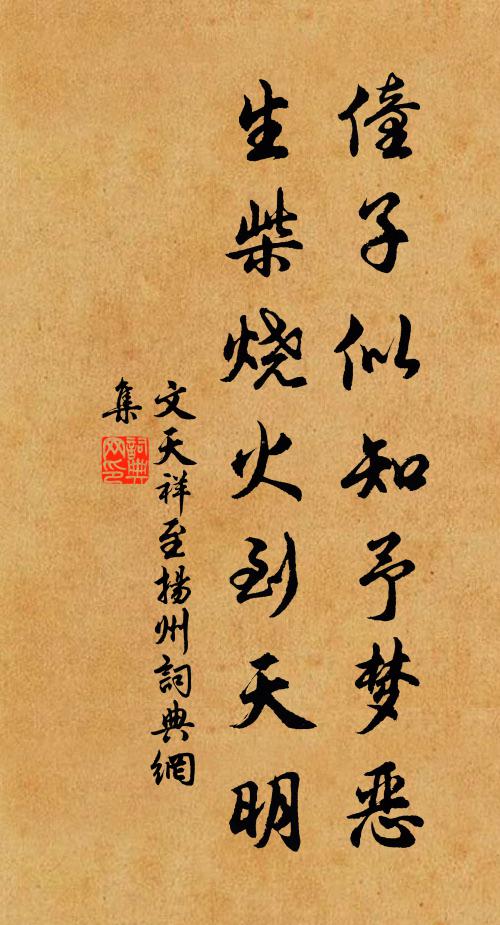 僮子似知予梦恶
生柴烧火到天明
文天祥至揚州詞典網
集
詞典
网印